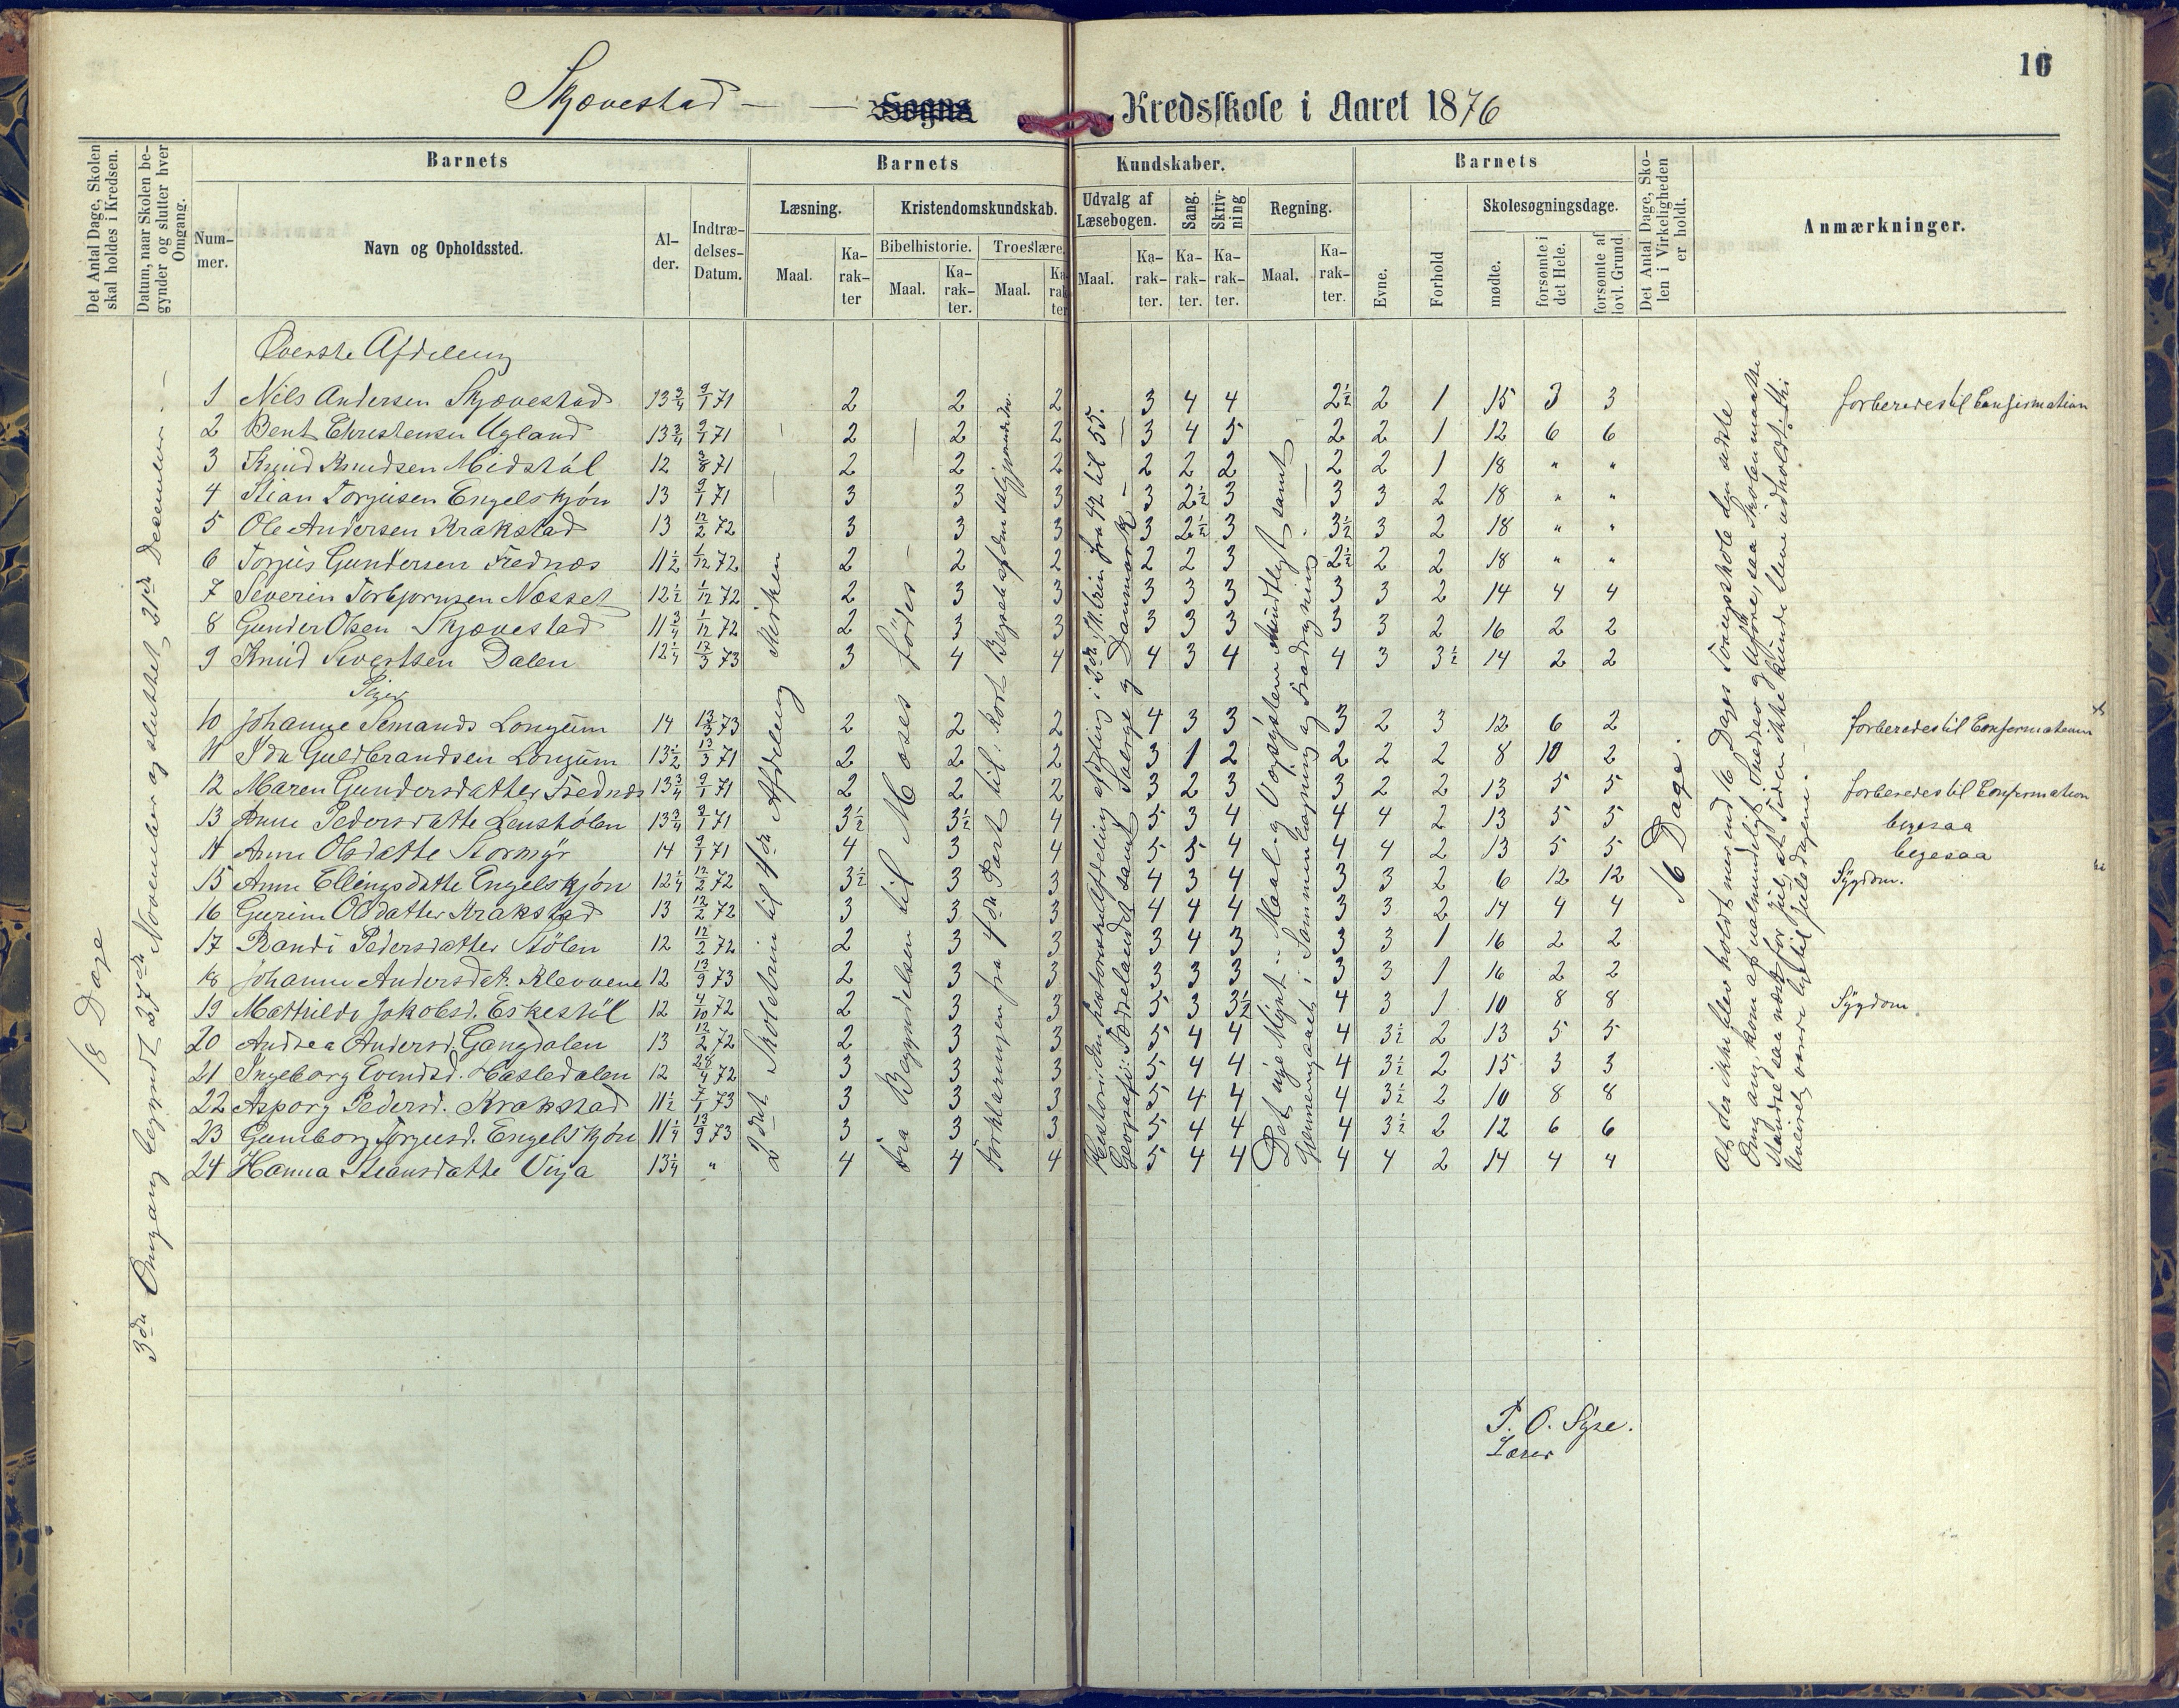 16
Skjævestad — — Sogns Kredsskole i Aaret 1876
Det Antal Dage, Skolen skal holdes i Kredsen.
Datum, naar Skolen begynder og slutter hver Omgang.
Barnets
Nummer.
Navn og Opholdssted.
Alder.
Indtrædelses-Datum.
Barnets Kundskaber.
Læsning.
Maal.
Karakter
Kristendomskundskab.
Bibelhistorie.
Maal.
Karakter.
Troeslære.
Maal.
Karakter
Udvalg af Læsebogen.
Maal.
Karakter.
Sang.
Karakter.
Skrivning
Karakter.
Regning.
Maal.
Karakter.
Barnets
Evne.
Forhold
Skolesøgningsdage.
mødte.
forsømte i det Hele.
forsømte af lovl. Grund.
Det Antal Dage, Skolen i Virkeligheden er holdt.
Anmærkninger.
18 Dage
3die Omgang begyndt 27de November og sluttet 21de December. —
Øverste Afdeling
1 Nils Andersen Skjævestad 13 3/4 9/1 71 2 2 2 3 4 4 2 1/2 2 1 15 3 3 forberedes til Confirmation
2 Bent Christensen Ugland 13 3/4 9/1 71 2 2 2 3 4 5 2 2 1 12 6 6
3 Knud Knudsen Midstøl 12 3/8 71 2 2 2 2 2 2 2 2 1 18 " "
4 Stian Torjusen Engelskjøn 13 9/1 71 3 3 3 3 2 1/2 3 3 3 2 18 " "
5 Ole Andersen Krakstad 13 12/2 72 3 3 3 3 2 1/2 3 3 1/2 3 2 18 " "
6 Torjus Gundersen Frednæs 11 1/2 1/12 72 2 2 2 2 2 3 2 1/2 2 2 18 " "
7 Severin Torbjørnsen Næsset 12 1/2 1/12 72 2 3 3 3 3 3 3 3 2 14 4 4
8 Gunder Olsen Skjævestad 11 3/4 1/12 72 2 3 3 3 3 3 3 3 2 16 2 2
9 Knud Sivertsen Dalen 12 1/4 12/3 73 3 4 4 4 3 4 4 3 3 1/2 14 2 2
Piger
10 Johanne Semands Longum 14 13/3 73 2 2 2 4 3 3 3 2 3 12 6 2 forberedes til Confirmation
11 Ida Guldbrandsen Longum 13 1/2 13/3 71 2 2 2 3 1 2 2 2 2 8 10 2
12 Maren Gundersdatter Frednæs 13 3/4 9/1 71 2 2 2 3 2 3 3 2 2 13 5 5 forberedes til Confirmation
13 Anne Pedersdatte Lensholen 13 3/4 9/1 71 3 1/2 3 1/2 4 5 3 4 4 4 2 13 5 5 ligesaa
14 Anne Olsdatte Stormyr 14 9/1 71 4 3 4 5 5 4 4 4 2 13 5 5 ligesaa
15 Anne Ellingsdatte Engelskjøn 12 1/4 12/2 72 3 1/2 3 3 4 3 4 3 3 2 6 12 12 Sygdom.
16 Gurine Olsdatter Krakstad 13 12/2 72 3 3 3 4 4 4 3 3 2 14 4 4
17 Randi Pedersdatter Stølen 12 12/2 72 2 3 3 3 4 3 3 3 1 16 2 2
18 Johanne Andersdat. Klevvene 12 13/9 73 2 3 3 3 3 3 3 3 1 16 2 2
19 Mathilde Jakobsd. Eskestøl 12 4/10 72 2 3 3 5 3 3 1/2 4 3 1 10 8 8 Sygdom.
20 Andrea Andersd. Gangdalen 13 12/2 72 2 3 3 5 4 4 4 3 1/2 2 13 5 5
21 Ingeborg Evendsd. Hasledalen 12 28/4 72 3 3 3 5 4 4 4 3 1/2 2 15 3 3
22 Asporg Pedersd. Krakstad 11 1/2 7/1 73 3 3 3 5 4 4 4 3 1/2 2 10 8 8
23 Gunborg Torjusd. Engelskjøn 11 1/4 13/9 73 3 3 3 5 4 4 4 3 1/2 2 12 6 6
24 Hanna Stiansdatte Viga 13 1/4 " 4 4 4 5 4 4 4 4 2 14 4 4
2det Skoletrin til 4de Afdeling Kirken
Fra Begyndelsen til Moses fødes —
Forklaringen fra 4de Part til: Kort Begreb af den saliggjørende
Historie: den historiske Afdeling i 2de Sk. trin fra 42 til 55.
Geografi: Fædrelandet samt Sverge og Danmark —
Det nye Mynt- Maal- og Vægtsystem mundtligt samt
Gjennemgaaet i Sammenlægning og Fradragning
16 Dage.
At der ikke blev holdt mer end 16 Dages Skole den sidste
Omgang, kom af ualmindeligt Snedrev og Uføre, saa Skolen maatte
standse saa nær før Jul, at Tiden ikke kunde blive udholdt; thi
Uveiret varede lige til Juledagene. —
T. O. Syse.
Lærer